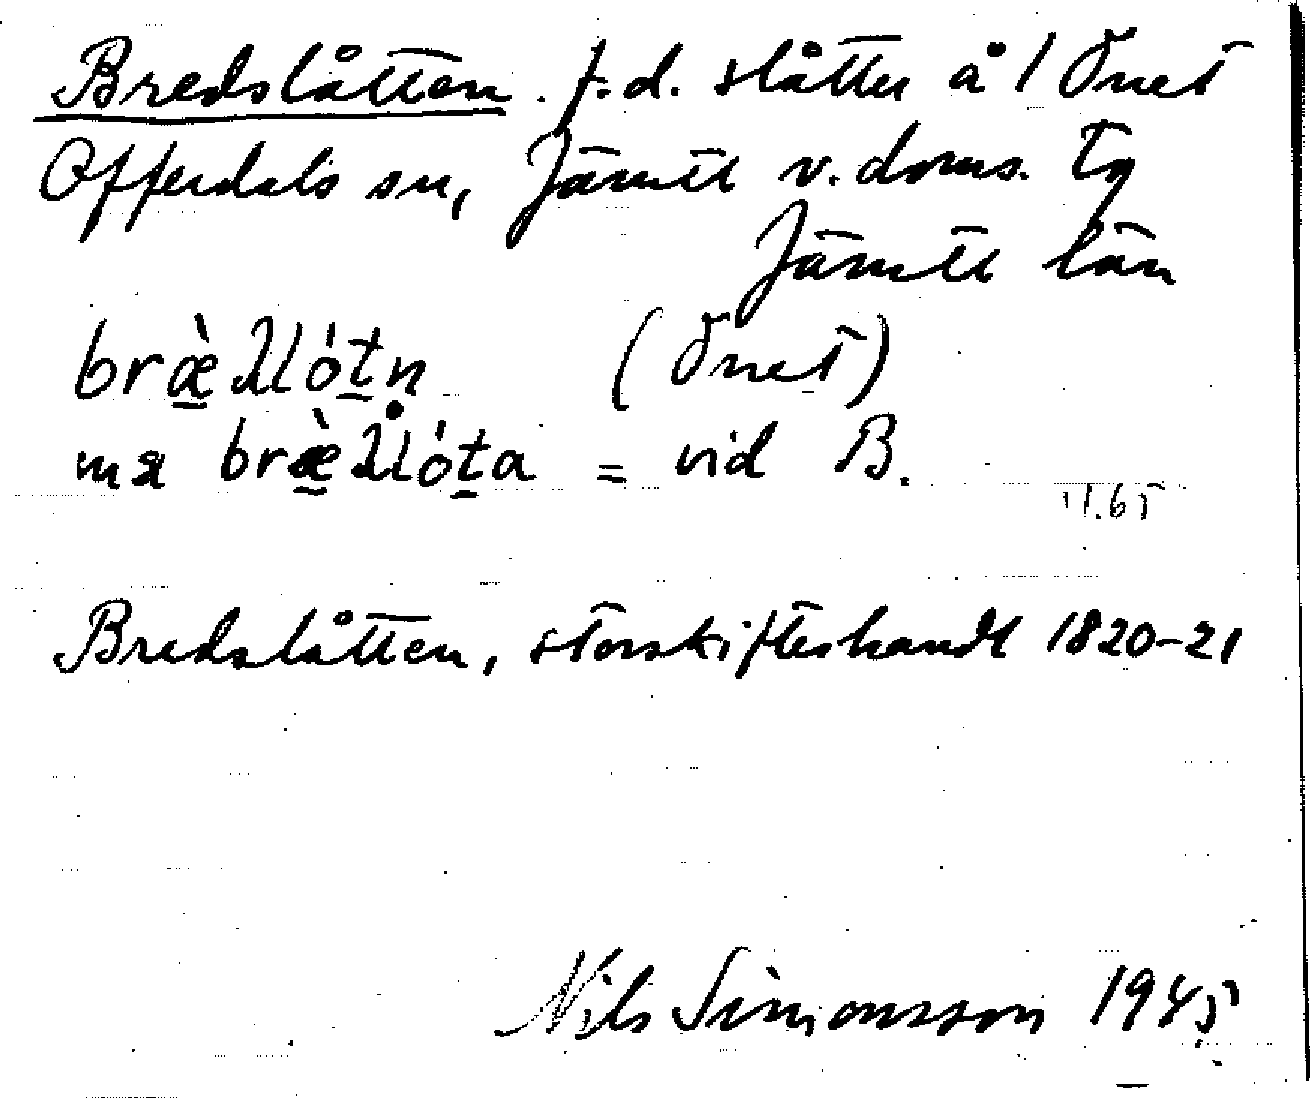 Bredslåtten. f.d. slåtter å 1 Önet
Offerdals sn, Jämtl v. doms. tg
Jämtl län
bræ̀λλótn (Önet)
bræ̀λλóta = vid B.
11.65
Bredslåtten, storskifteshandl 1820-21
Nils Simonsson 1945